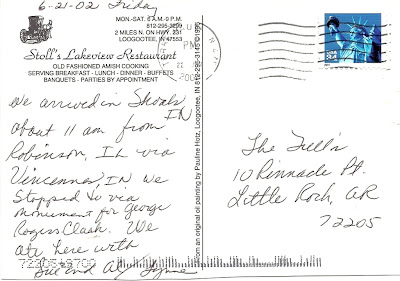 6-21-02 Friday
MON.-SAT. 6 A.M.-9 P.M.
812-295-3299
2 MILES N. ON HWY. 231
LOOGOOTEE, IN 47553
Stoll's Lakeview Restaurant
OLD FASHIONED AMISH COOKING
SERVING BREAKFAST - LUNCH - DINNER - BUFFETS
BANQUETS - PARTIES BY APPOINTMENT
we arrived in Shoals, IN
about 11 am from
Robinson, IL via
Vincennes, IN we
stopped to via
monument for George
Rogers Clark. We
ate here with
Sue and Al Lynne
From an original oil painting by Pauline Hotz, Loogootee, IN
PM
The Tull's
10 Pinnacle Pt.
Little Rock, AR
72205